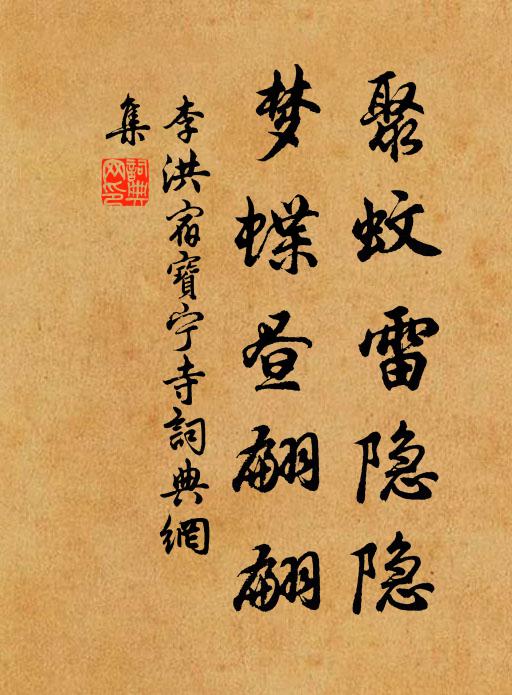 聚蚊雷隐隐
梦蝶昼翩翩
李洪宿寶宁寺詞典網
集
詞典網印